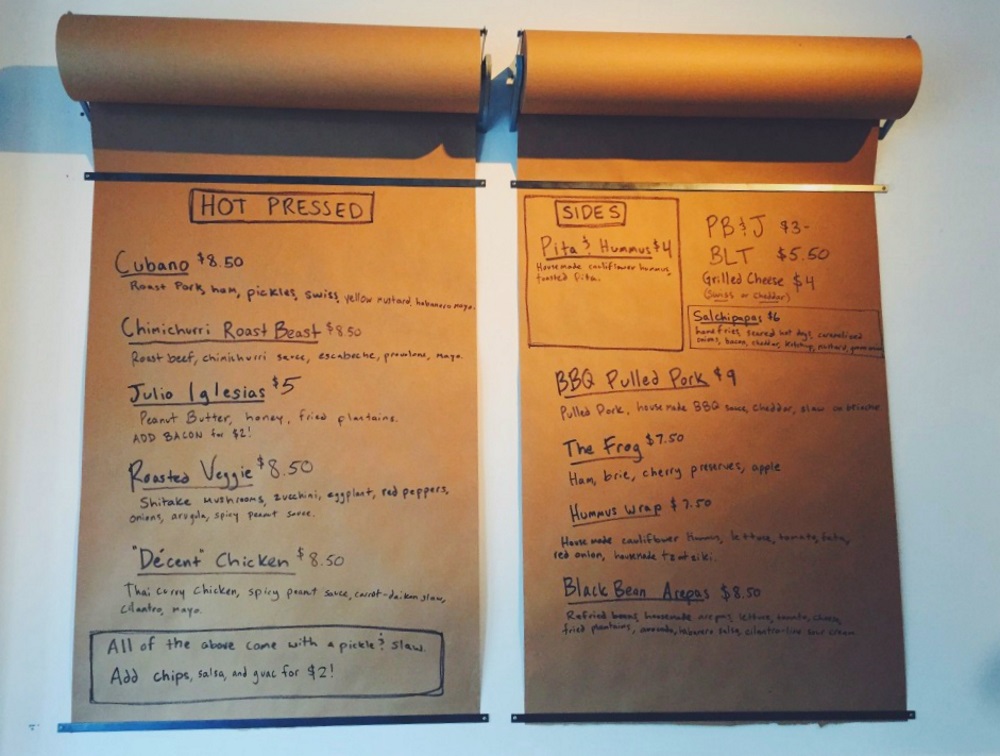 HOT PRESSED
Cubano $8.50
Roast Pork, ham, pickles, swiss, yellow mustard, habanero mayo.
Chimichurri Roast Beast $8.50
Roast beef, chimichurri sauce, escabeche, provolone, mayo.
Julio Iglesias $5
Peanut Butter, honey, fried plantains.
ADD BACON for $2!
Roasted Veggie $8.50
Shitake mushrooms, zucchini, eggplant, red peppers,
onions, arugula, spicy peanut sauce.
"Décent" Chicken $8.50
Thai curry chicken, spicy peanut sauce, carrot-daikon slaw,
cilantro, mayo.
All of the above come with a pickle & slaw.
Add chips, salsa, and guac for $2!
SIDES
Pita & Hummus $4
Housemade cauliflower hummus,
toasted Pita.
PB&J $3-
BLT $5.50
Grilled Cheese $4
(Swiss or Cheddar)
Salchipapas $6
home fries, seared hot dogs, caramelized
onions, bacon, cheddar, ketchup, mustard,
BBQ Pulled Pork $9
Pulled Pork, housemade BBQ sauce, cheddar, slaw on brioche
The Frog $7.50
Ham, brie, cherry preserves, apple
Hummus Wrap $7.50
House made cauliflower Hummus, lettuce, tomato, feta,
red onion, housemade tzatziki.
Black Bean Arepas $8.50
Refried beans, housemade arepas, lettuce, tomato, cheese,
fried plantains, avocado, habanero salsa, cilantro-lime sour cream